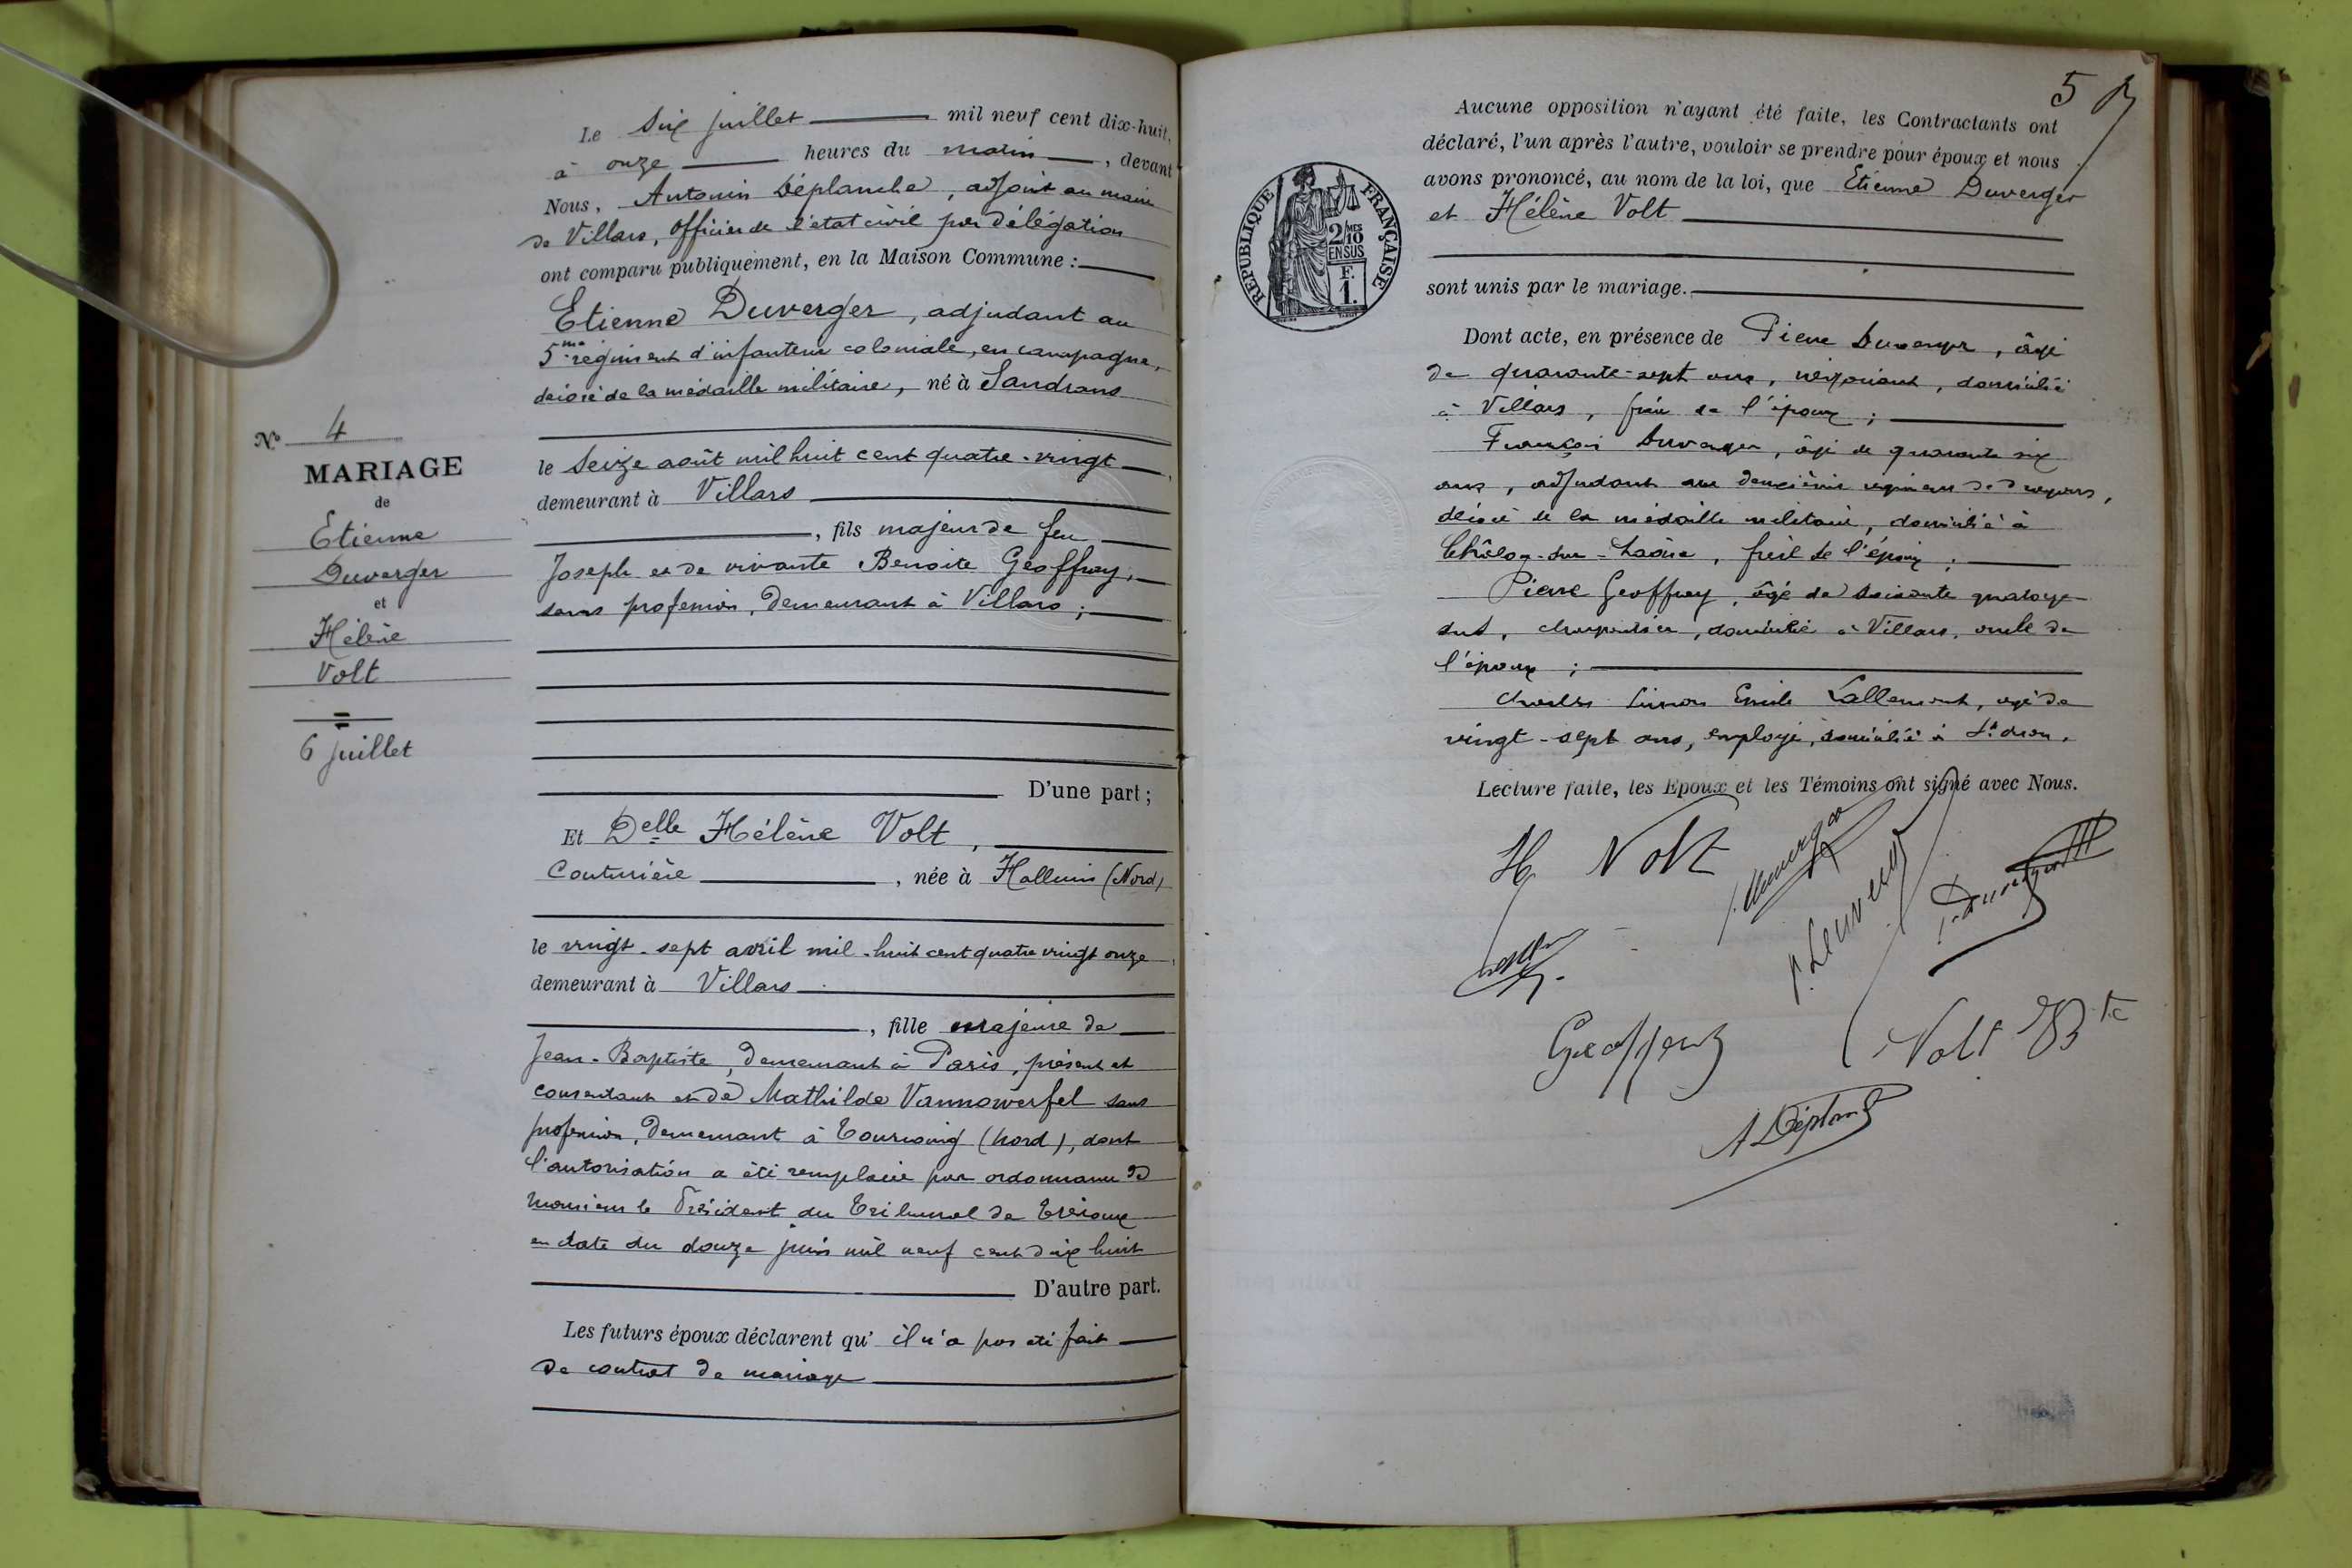 Le Six juillet mil neuf cent dix-huit,
à onze heures du matin, devant
Nous, Antonin Déplanche, adjoint au maire
de Villars, Officier de l'état civil par délégation
ont comparu publiquement, en la Maison Commune :
Etienne Duverger, adjudant au
5me régiment d'infanterie coloniale, en campagne,
décoré de la médaille militaire, né à Sandrans
le Seize août mil huit cent quatre-vingt
demeurant à Villars
, fils majeur de feu
Joseph et de vivante Benoite Geoffray,
sans profession, demeurant à Villars ;
D'une part ;
Et Delle Hélène Volt,
Couturière, née à Halluin (Nord)
le vingt-sept avril mil-huit cent quatre vingt onze,
demeurant à Villars
, fille majeure de
Jean-Baptiste, demeurant à Paris, présent et
consentant et de Mathilde Vannowerfel sans
profession, demeurant à Tourcoing (Nord), dont
l'autorisation a été remplacée par ordonnance de
Monsieur le Président du Tribunal de Trévoux
en date du douze juin mil neuf cent dix huit
D'autre part.
Les futurs époux déclarent qu'il n'a pas été fait
de contrat de mariage
No 4
MARIAGE
de
Etienne
Duverger
et
Hélène
Volt
6 juillet
5
Aucune opposition n'ayant été faite, les Contractants ont
déclaré, l'un après l'autre, vouloir se prendre pour époux et nous
avons prononcé, au nom de la loi, que Etienne Duverger
et Hélène Volt
sont unis par le mariage.
Dont acte, en présence de Pierre Duverger, âgé
de quarante-sept ans, négociant, domicilié
à Villars, frère de l'époux ;
François Duverger, âgé de quarante six
ans, adjudant au deuxième régiment de dragons,
décoré de la médaille militaire, domicilié à
Châlon-sur-Saône, frère de l'époux ;
Pierre Geoffray, âgé de soixante quatorze
ans, charpentier, domicilié à Villars, oncle de
l'époux ;
Charles Simon Emile Lallemant, âgé de
vingt-sept ans, employé, domicilié à
Lecture faite, les Epoux et les Témoins ont signé avec Nous.
REPUBLIQUE FRANÇAISE
2/10 MES
EN SUS
F.
1.
H Volt
Duverger
Geoffray
Volt JBte
A Déplanche